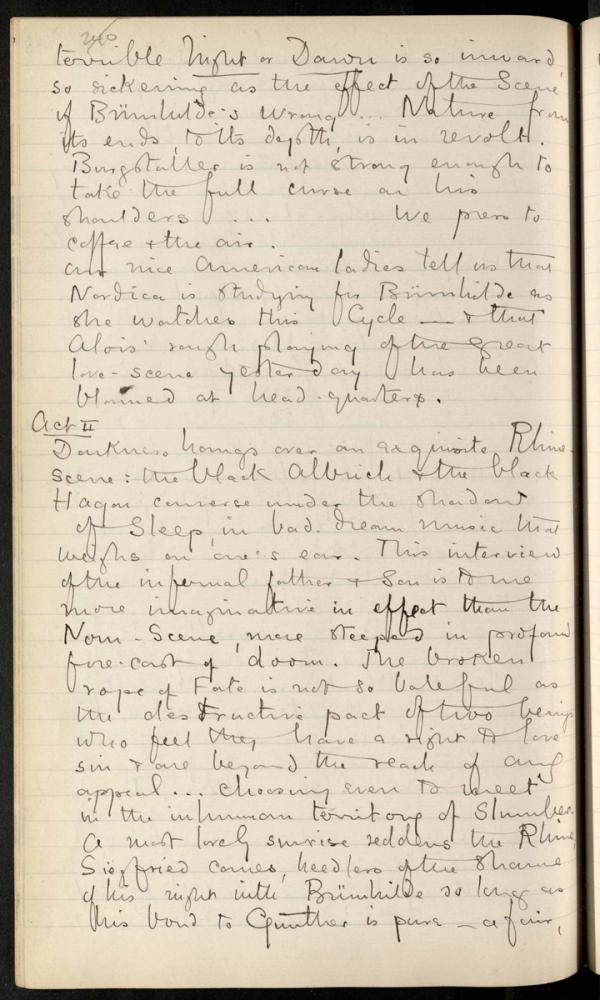 terrible Night or Dawn is so inward,
so sickening as the effect of the Scene
of Brünhilde's wrong... Nature from
its ends, to its depth, is in revolt.
Burgstaller is not strong enough to
take the full curse on his
shoulders ... We press to
coffee & the air.
Our nice American ladies tell us that
Nordica is studying for Brünhilde as
she watches this Cycle — & that
Alois' rough playing of the great
love-scene yesterday has been
blamed at head-quarters.
Act II
Darkness hangs over an exquisite Rhine-
scene: the black Albrich & the black
Hagan converse under the shadow
of Sleep, in bad-dream music that
weighs on one's ear. This interview
of the infernal father & Son is to me
more imaginative in effect than the
Norn-Scene, more steeped in profound
fore-cast of doom. The broken
rope of Fate is not so baleful as
the destructive pact of two beings
who feel they have a right to love
sin & are beyond the reach of any
appeal... choosing even to meet
in the inhuman territory of Slumber.
A most lovely sunrise reddens the Rhine,
Siegfried comes, heedless of the shame
of his night with Brünhilde so long as
his bond to Gunther is pure — a fair,